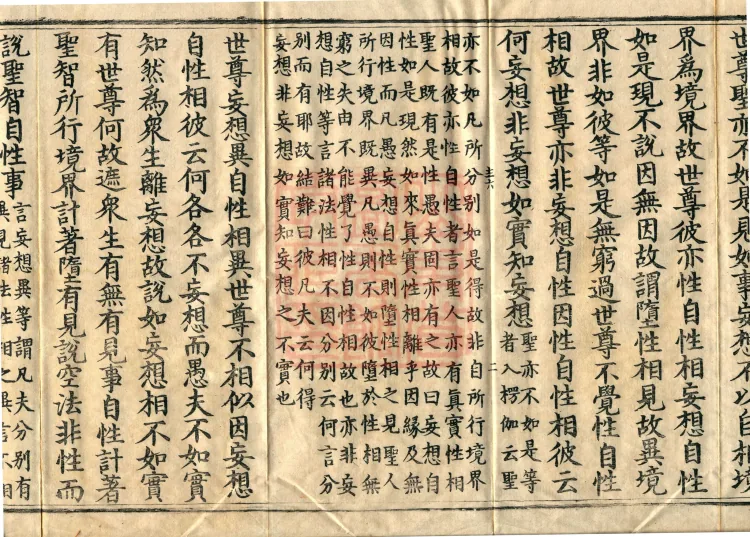 世尊聖亦不如是見如事妄想不以自相境
界爲境界故世尊彼亦性自性相妄想自性
如是現不說因無因故謂墮性相見故異境
界非如彼等如是無窮過世尊不覺性自性
相故世尊亦非妄想自性因性自性相彼云
何妄想非妄想如實知妄想
聖亦不如是等
者入楞伽云聖
二
亦不如凡所分別如是得故非自所行境界
相故彼亦性自性者言聖人亦有真實性相
聖人既有是性愚夫固亦有之故曰妄想自
性如是現然如來真實性相離乎因緣及無
因性而凡愚妄想自性則墮性相之見聖人
所行境界既異凡愚則不如彼墮於性相無
窮之失由不能覺了性自性相故也亦非妄
想自性等言諸法性相不因分別云何言分
別而有耶故結難曰彼凡夫云何得
妄想非妄想如實知妄想之不實也
世尊妄想異自性相異世尊不相似因妄想
自性相彼云何各各不妄想而愚夫不如實
知然爲衆生離妄想故說如妄想相不如實
有世尊何故遮衆生有無有見事自性計著
聖智所行境界計著墮有見說空法非性而
說聖智自性事
言妄想異等謂凡夫分別有
異見諸法性相之異言不相